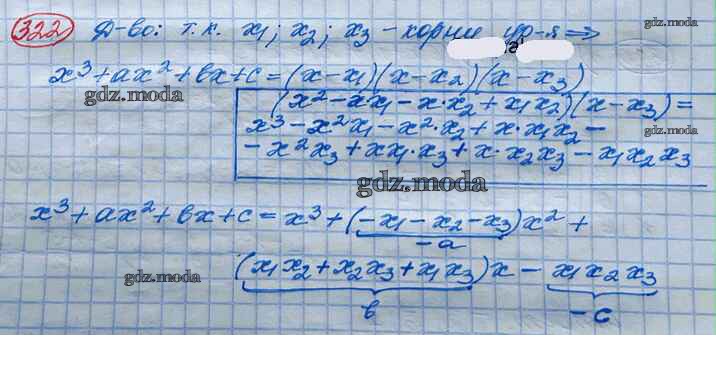 322 Д-во: т.к. x₁; x₂; x₃ - корни ур-я ⇒
gdz.moda
x³+ax²+bx+c=(x-x₁)(x-x₂)(x-x₃)
gdz.moda
(x²-xx₁-x·x₂+x₁x₂)(x-x₃)=
x³-x²x₁-x²·x₂+x·x₁x₂-
-x²x₃+xx₁·x₃+x·x₂x₃-x₁x₂x₃
gdz.moda
x³+ax²+bx+c=x³+(-x₁-x₂-x₃)x²+
-a
gdz.moda
(x₁x₂+x₂x₃+x₁x₃)x-x₁x₂x₃
b -c
gdz.moda